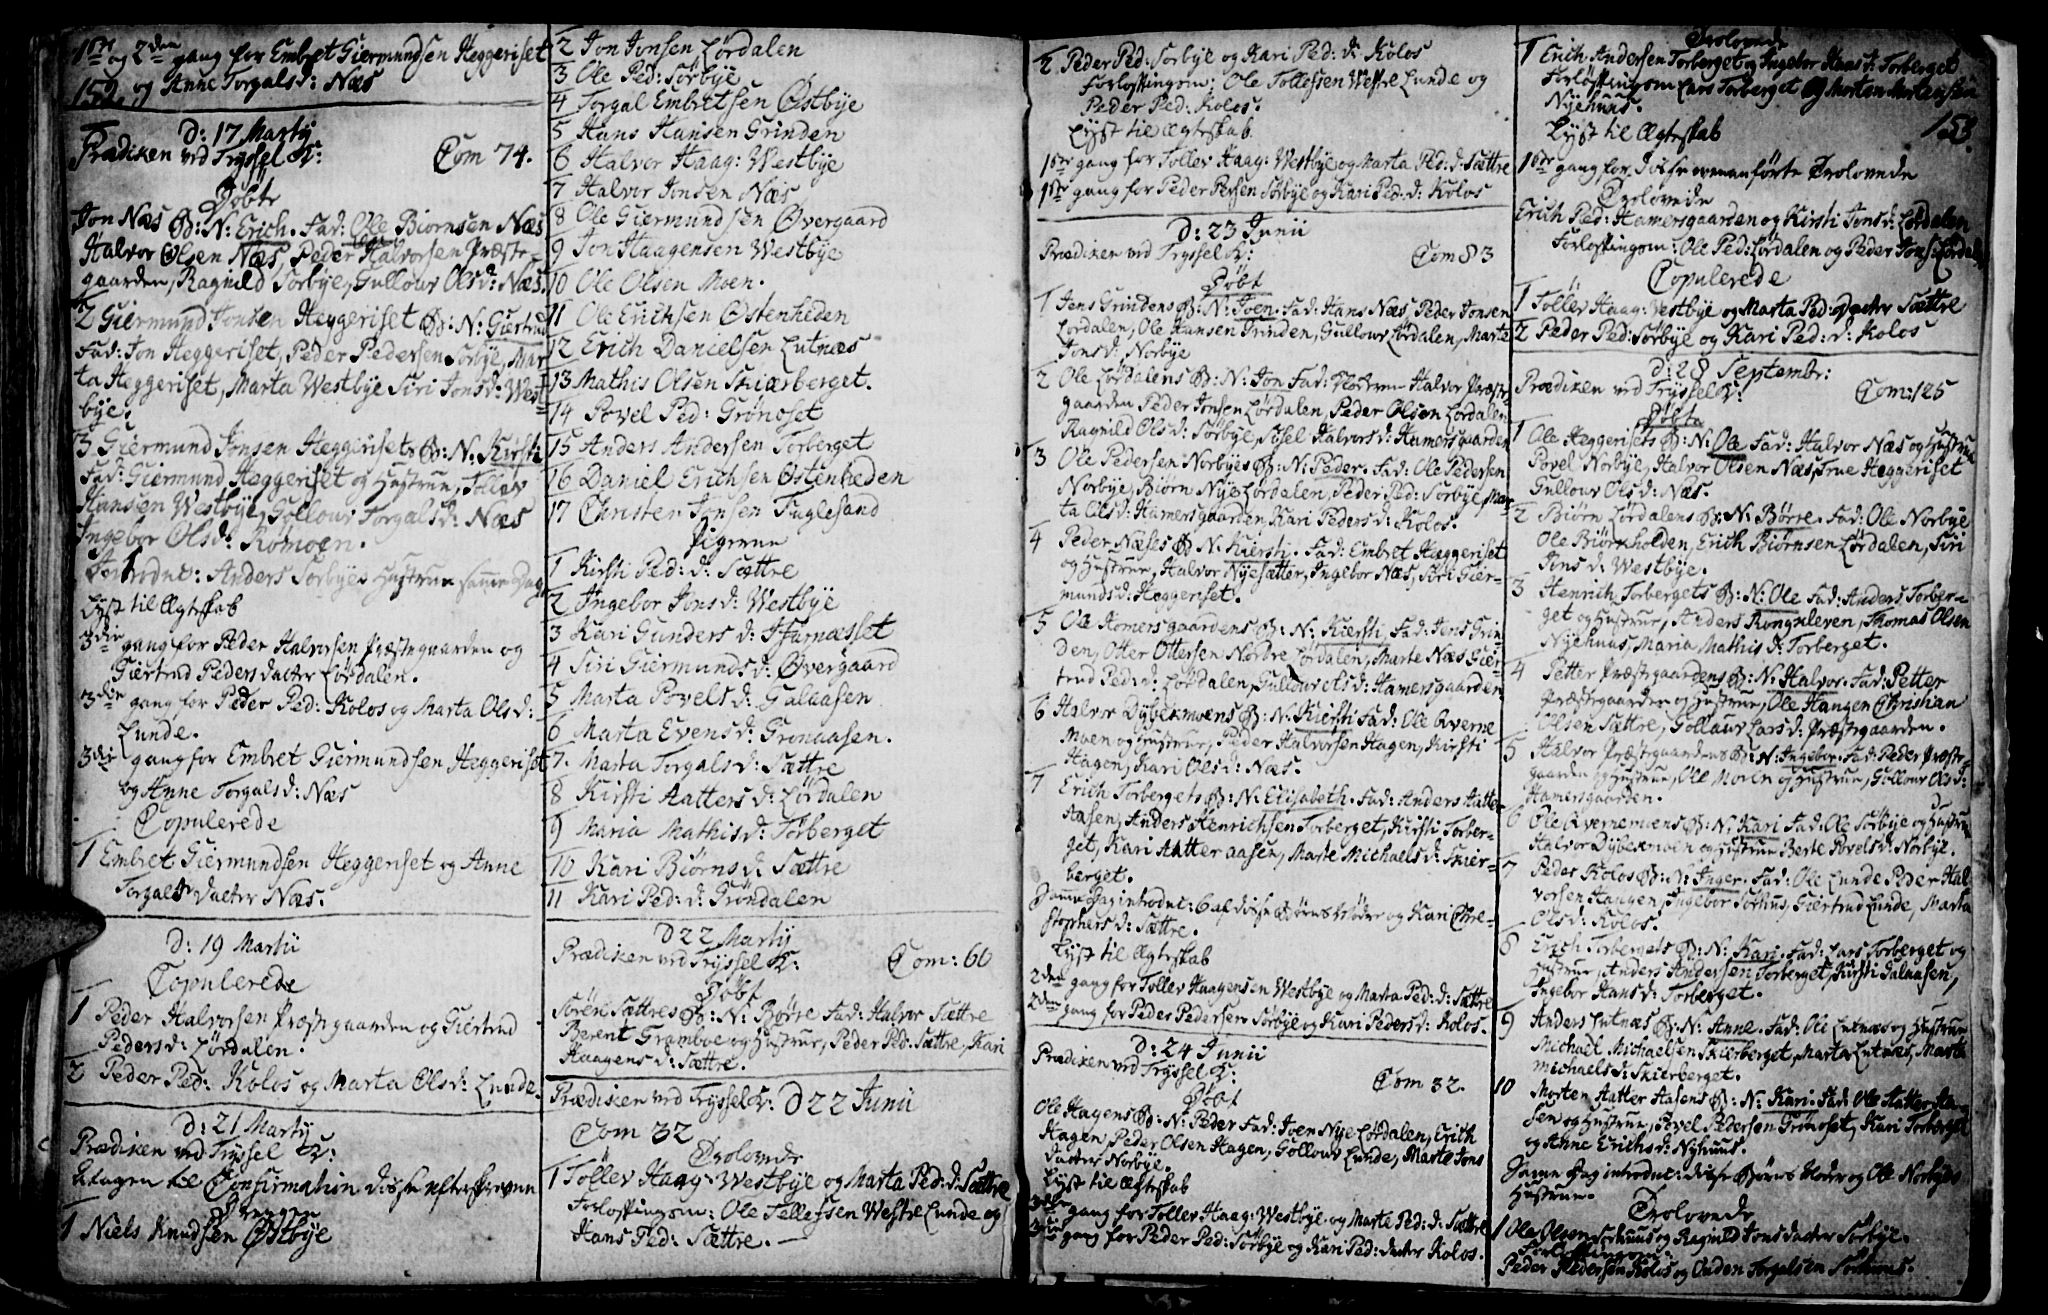 1ste og 2den gang for Embret Giermundsen Heggeriset
152. og Anne Torgalsd: Næs
D: 17 Marty
Prædiken ved Tryssel K: Com 74.
Døbte
Jon Næs B: N: Erich. Fad: Ole Biornsen Næs
Halvor Olsen Næs, Peder Halvorsen Præste-
gaarden, Ragnild Sorbye, Gullour Olsd: Næs.
2 Giermund Jonsen Heggeriset B: N: Giertrud
Fad: Jon Heggeriset, Peder Pedersen Sorbye, Mar
ta Heggeriset, Marta Westbye Siri Jonsd: West-
bye.
3 Giermund Jonsen Heggerisets B: N: Kirsti
Fad: Giermund Heggeriset og Hustrue, Tollev
Hansen Westbye, Gollour Torgalsd: Næs
Ingebor Olsd: Romoen.
Introdut: Anders Sorbyes Hustrue samme Dag
Lyst til Ægteskab
3die gang for Peder Halvorsen Præstegaarden og
Giertrud Pedersdatter Lørdalen.
3die gang for Peder Ped: Kolos og Marta Olsd:
Lunde.
3die gang for Embret Giermundsen Heggeriset
og Anne Torgalsd: Næs
Copulerede
1 Embret Giermundsen Heggeriset og Anne
Torgalsdatter Næs.
D: 19 Martii
Copulerede
1 Peder Halvorsen Præstegaarden og Giertrud
Pedersd: Lørdalen.
2 Peder Ped: Kolos og Marta Olsd: Lunde.
D: 21 Marty
Prædiken ved Tryssel K:
Antagen til Confirmation disse efterskrevne
Drenger
1 Niels Knudsen Østbye
2 Jon Jonsen Lørdalen
3 Ole Ped: Sørbye
4 Torgal Embretsen Østbye
5 Hans Hansen Grinden
6 Halvor Haag: Westbye
7 Halvor Jonsen Næs
8 Ole Giermundsen Øvergaard
9 Jon Haagensen Westbye
10 Ole Olsen Moen.
11 Ole Erichsen Østenheden
12 Erich Danielsen Lutnæs
13 Mathis Olsen Skiærberget.
14 Povel Ped: Grønoset
15 Anders Andersen Torberget
16 Daniel Erichsen Østenheden
17 Christen Jonsen Fuglesand
Pigerne
1 Kirsti Ped: d: Sættre
2 Ingebor Jonsd: Westbye
3 Kari Gundersd:
4 Siri Giermundsd: Øvergaard
5 Marta Povelsd: Galaasen
6 Marta Evensd: Gronaasen.
7. Marta Torgalsd: Sættre
8 Kirsti Aattersd: Lørdalen
9 Maria Mathisd: Torberget
10 Kari Biørnsd: Sættre
11 Kari Ped: d: Grøndalen
D 22 Marty
Prædiken ved Tryssel K: Com: 60
Døbt
Sören Sættres B: N: Børre Fad: Halvor Sættre
Berent Gramboe og Hustrue, Peder Ped: Sættre, Kari
Haagensd: Sættre.
Prædiken ved Tryssel K: D 22 Junii
Com 32
Trolovede
1 Tollev Haag: Westbye og Marta Ped: d: Sættre
Forloftingsm: Ole Tellefsen Westre Lunde og
Hans Ped: Sættre.
2 Peder Ped: Sorbye og Kari Ped: d: Kolos
Forloftingsm: Ole Tollefsen Westre Lunde og
Peder Ped: Kolos.
Lyst til Ægteskab
1ste gang for Tollev Haag: Westbye og Marta Ped: d: Sættre
1ste gang for Peder Persen Sørbye og Kari Ped: d: Kolos
D: 23 Junii
Prædiken ved Tryssel K: Com 83
Døbt
1 Jens Grindens B: N: Joen. Fad: Hans Næs, Peder Jonsen
Lordalen, Ole Hansen Grinden, Gullour Lørdalen, Marte
Jonsd: Norbye
2 Ole Lørdalens B: N: Jon Fad: Halvor Præste-
gaarden Peder Jonsen Lørdalen, Peder Olsen Lørdalen
Ragnild Olsd: Sørbye, Sisel Halvorsd: Hamersgaarden
3 Ole Pedersen Norbyes B: N: Peder. Fad: Ole Pedersen
Norbye, Biørn Nye Lørdalen, Peder Ped: Sorbye, Mar-
ta Olsd: Hamersgaarden, Kari Pedersd: Kolos.
4 Peder Næses B: N: Kiersti. Fad: Embret Heggeriset
og Hustrue, Halvor Nyesætter, Ingebor Næs, Siri Gier-
mundsd: Heggeriset.
5 Ole Homersgaardens B: N: Kiersti, Fad: Jens Grin-
den, Otter Ottersen Nørdre Lørdalen, Marte Næs Gier-
trud Ped: d: Lørdalen, Gullour Olsd: Hamersgaarden
6 Halvor Dybekmoens B: N: Kiersti Fad: Ole Qverne
Moen og Hustrue, Peder Halvorsen Hagen, Kirsti
Hagen, Kari Olsd: Næs.
7 Erich Torbergets B: N: Elisabeth. Fad: Anders Aatter
Aasen, Anders Henrichsen Torberget, Kirsti Torber-
get, Kari Aatter aasen, Marte Michaelsd: Skier-
berget.
Samme Dag introdut: 6 af disse Børns Mødre og Kari Chri-
stophersd: Sættre.
Lyst til Ægteskab
2den gang for Tollev Haagensen Westbye og Marta Ped: d: Sættre
2den gang for Peder Pedersen Sorbye og Kari Pedersd: Kolos.
D: 24 Junii
Prædiken ved Tryssel K: Com 32.
Døbt
Ole Hagens B: N: Peder Fad: Joen Nye Lørdalen, Erich
Hagen, Peder Olsen Hagen, Gollour Lunde, Marte Jons
datter Norbye.
Lyst til Ægteskab
3die gang for Tollev Haag: Westbye og Marte Ped: d: Sættre
3die gang for Peder Ped: Sørbye og Kari Ped: datter Kolos.
Trolovede
1 Erich Andersen Torberget og Ingebor Hans d: Torberget
Forloftingsm Lars Torberget og Morten Mortensen
Nyehuus.
Lyst til Ægteskab 153.
1ste gang for disse ovenanførte Trolovede
Trolovede
Erich Ped: Hamersgaarden og Kirsti Jonsd: Lørdalen
Forloftingsm: Ole Ped: Lørdalen og Peder Jons: Lørdalen
Copulerede
1 Tollev Haag: Westbye og Marta Ped: datter Sættre
2 Peder Ped: Sørbye og Kari Ped: d: Kolos
D: 28 Septembr:
Prædiken ved Tryssel K: Com: 125
Døbte
1 Ole Heggerisets B: N: Ole Fad: Halvor Næs og Hustrue
Povel Norbye, Halvor Olsen Næs, Heggeriset
Gullour Olsd: Næs.
2 Biørn Lørdalens B: N: Børre. Fad: Ole Norbye
Ole Biørkholden, Erich Biørnsen Lørdalen, Siri
Jonsd: Westbye.
3 Henrich Torbergets B: N: Ole Fad: Anders Torber-
get og Hustrue, Anders Rongxleven, Thomas Olsen
Nyehuus, Maria Mathis d: Torberget.
4 Petter Præstegaardens B: N: Halvor. Fad: Petter
Præstegaarden og Hustrue, Ole Haugen Christian
Olsen Sættre, Gollour Larsd: Præstegaarden.
5 Halvor Præstegaardens B: N: Ingebor. Fad: Peder Præste-
gaarden og Hustrue, Ole Moren og Hustrue, Gollour Ols d:
Hamersgaarden.
6 Ole Qvernemoens B: N: Kari Fad: Ole Sørbye og Hustrue
Halvor Dybekmoen og Hustrue Berte Povelsd: Norbye.
7 Peder Kolos B: N: Inger. Fad: Ole Lunde Peder Hal
vorsen Haugen, Ingebor Sorhus, Giertrud Lunde, Marta
Olsd: Kolos.
8 Erich Torbergets B: N: Kari. Fad: Lars Torberget og
Hustrue, Anders Andersen Torberget, Kirsti Galaasen,
Ingebor Hansd: Torberget.
9 Anders Lutnæs B: N: Anne. Fad: Ole Lutnæs og Hustrue
Michael Michaelsen Skierberget, Marta Lutnæs, Marta
Michaelsd: Skierberget.
10 Morten Aatter Aasens B: N: Kari. Fad: Ole Aatter Aa-
sen og Hustrue, Povel Pedersen Grønoset, Kari Torberget
og Anne Erichsd: Nyhuus.
Samme Dag introdut: disse Børns Mødre og Ole Norbyes
Hustrue.
Trolovede
1 Ole Olsen Sorhuus og Ragnild Jonsdatter Sørbye.
Forloftingsm:
Peder Pedersen Kolos og Onden Torgalsen Sorhuus.